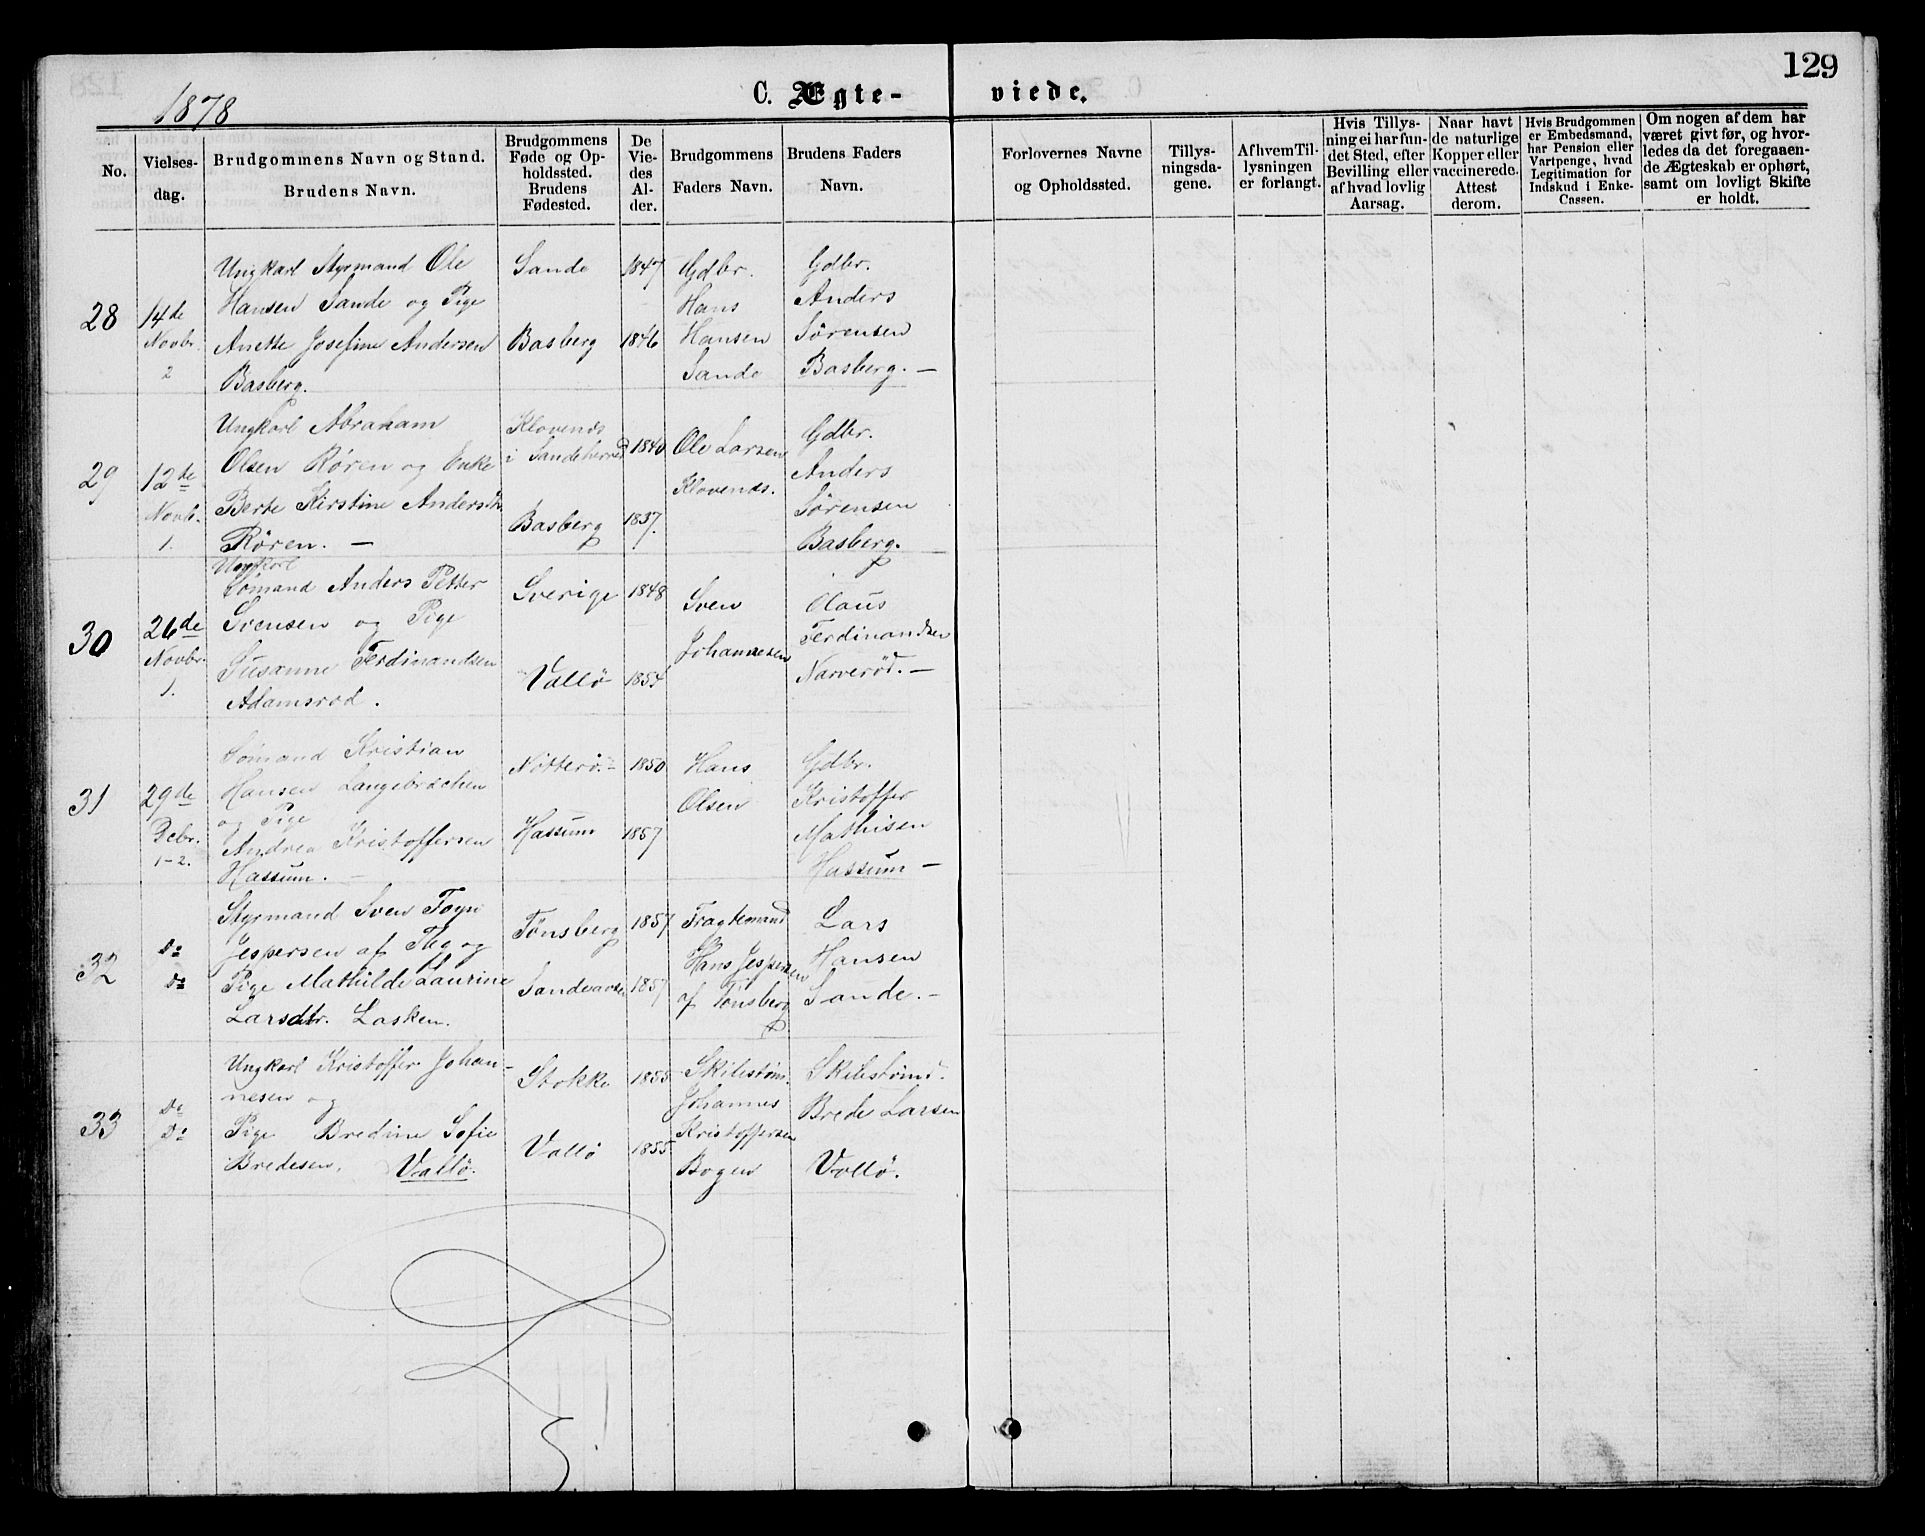 129
1878
C. Ægte-
viede.
No.
Vielses-
dag.
Brudgommens Navn og Stand.
Brudens Navn.
Brudgommens
Føde og Op-
holdssted.
Brudens
Fødested.
De
Vie-
des
Al-
der.
Brudgommens
Faders Navn.
Brudens Faders
Navn.
Forlovernes Navne
og Opholdssted.
Tillys-
ningsda-
gene.
Af hvem Til-
lysningen
er forlangt.
Hvis Tillys-
ning ei har fun-
det Sted, efter
Bevilling eller
af hvad lovlig
Aarsag.
Naar havt
de naturlige
Kopper eller
vaccinerede.
Attest
derom.
Hvis Brudgommen
er Embedsmand,
har Pension eller
Vartpenge, hvad
Legitimation for
Indskud i Enke-
Cassen.
Om nogen af dem har
været givt før, og hvor-
ledes da det foregaaen-
de Ægteskab er ophørt,
samt om lovligt Skifte
er holdt.
28
14de
Novbr.
2
Ungkarl Styrmand Ole
Hansen Sande og Pige
Anette Josefine Andersen
Basberg.
Sande
Basberg
1847
1846
Gdbr.
Hans
Hansen
Sande
Gdbr.
Anders
Sørensen
Basberg. —
29
12te
Novb.
1.
Ungkarl Abraham
Olsen Røren og Enke
Berte Kirstine Andersdt.
Røren. —
Klovenes
i Sandeherred
Basberg
1840
1837.
Ole Larsen
Klovenes.
Gdbr.
Anders
Sørensen
Basberg.
30
26de
Novbr.
1.
Ungkarl
Sømand Anders Petter
Svensen og Pige
Susanne Ferdinandsen
Adamsrød.
Sverige
Vallö
1848
1854
Sven
Johannesen
Olaus
Ferdinandsen
Narverød. —
31
29de
Debr.
1-2.
Sømand Kristian
Hansen Langebrækken
og Pige
Andrea Kristoffersen
Hassum. —
Nøtterø. -
Hassum
1850
1857
Hans
Olsen
Gdbr.
Kristoffer
Mathisen
Hassum —
32
Do
Do
Styrmand Sven Foyn
Jespersen af Tbg og
Pige Mathilde Laurine
Larsdtr. Lasken.
Tønsberg
Sandeaasen
1857
1857
Fragtemand
Hans Jespersen
af Tønsberg
Lars
Hansen
Sande. -
33
Do
Do
Ungkarl Kristoffer Johan-
nesen og
Pige Bredine Sofie
Bredesen. Vallö.
Stokke
Vallö
1855
1855
Skibstøm.
Johannes
Kristoffersen
Bogen
Skibstømd.
Brede Larsen
Vollö.